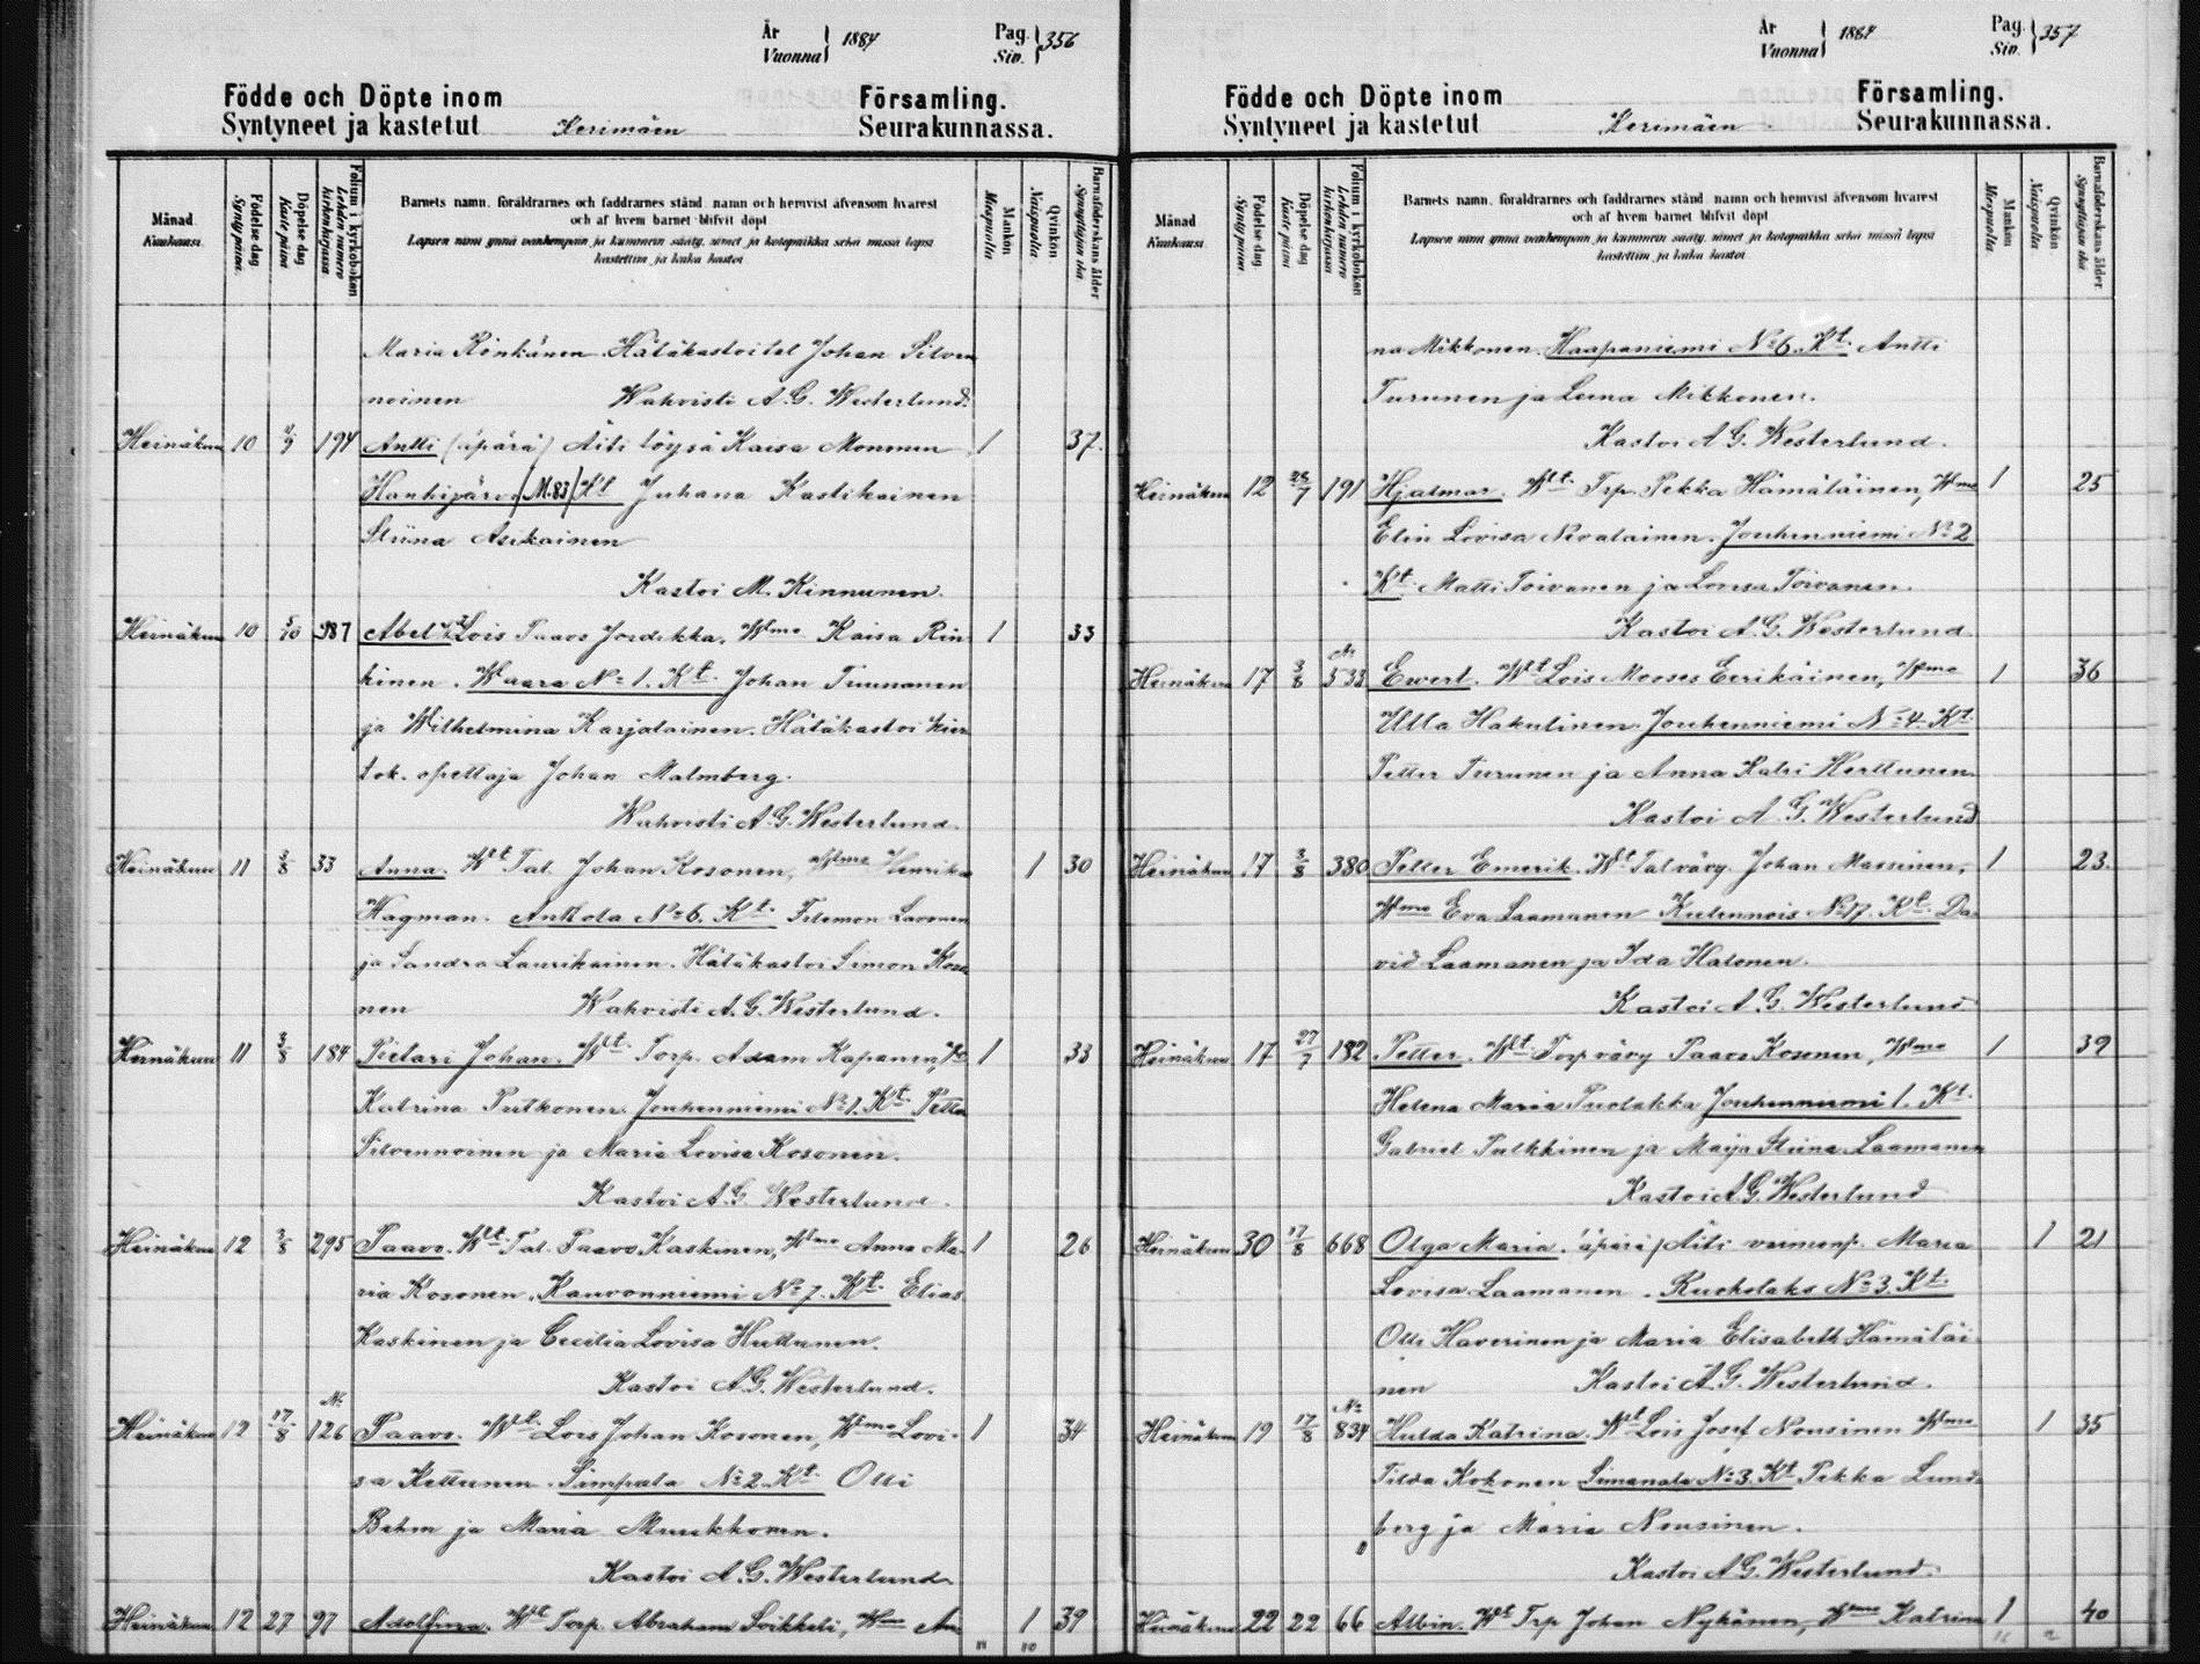 År
Vuonna } 1884
Pag.
Siv. } 356
Födde och Döpte inom Församling.
Syntyneet ja kastetut Kerimäen Seurakunnassa.
Månad
Kuukausi.
Födelse dag
Synty päivä.
Döpelse dag
Kaste päivä
Folium i kyrkoboken
Lehden numero
kirkonkirjassa
Barnets namn, föräldrarnes och faddrarnes stånd, namn och hemvist äfvensom hvarest
och af hvem barnet blifvit döpt
Lapsen nimi ynnä vanhempain ja kummein sääty, nimet ja kotopaikka sekä missä lapsi
kastettiin ja kuka kastoi
Mankön
Miespuolia
Qvinkön
Naispuolia
Barnaföderskans ålder
Synnyttäjän ikä
Maria Rönkänen. Hätäkastoitel Johan Silven
noinen Wahvisti A. G. Westerlund.
Heinäkuu 10 194 Antti (äpärä) Äiti löysä Kaisa Mononen 1 37.
(M. 83) Kt Juhana Kastikainen
Stiina Asikainen
Kastoi M. Kinnunen.
Heinäkuu 10 5/10 387 Abel Lois Paavo Jordikka. Wmo Kaisa Rin 1 33
kinen. Waara No 1. Kt. Johan Tiunanen
ja Wilhelmina Karjalainen. Hätäkastoi kier
tok. opettaja Johan Malmberg.
Wahvisti A. G. Westerlund.
Heinäkuu 11 3/8 33 Anna. Wt Tal. Johan Kosonen, Wmo Henrika 1 30
Hagman. Anttola No 6. Kt. Filemon Lavonen
ja Sandra Laurikainen. Hätäkastoi Simon Koso
nen Wahvisti A. G. Westerlund.
Heinäkuu 11 3/8 184 Pietari Johan. Wt Torp. Adam Kapanen, Wo 1 33
Katrina Putkonen. Jouhenniemi No 1. Kt. Petter
Silvennoinen ja Maria Lovisa Kosonen.
Kastoi A. G. Westerlund.
Heinäkuu 12 3/8 295 Paavo. Wt Tal. Paavo Kaskinen, Wmo Anna Ma- 1 26
ria Kosonen. Kauvonniemi No 7. Kt. Elias
Kaskinen ja Cecilia Lovisa Huttunen.
Kastoi A. G. Westerlund.
Heinäkuu 12 17/8 N. 126 Paavo. Wt Lois Johan Kosonen, Wmo Lovi- 1 34
sa Kettunen. Simpala No 2. Kt. Olli
Behm ja Maria Muukkonen.
Kastoi A. G. Westerlund.
Heinäkuu 12 27 97 Adolfina. Wt Torp. Abraham Loikkeli, Wmo An 1 39
11 10
År
Vuonna } 1884
Pag.
Siv. } 357
Födde och Döpte inom Församling.
Syntyneet ja kastetut Kerimäen Seurakunnassa.
Månad
Kuukausi
Födelse dag
Synty päivä
Döpelse dag
Kaste päivä
Folium i kyrkoboken
Lehden numero
kirkonkirjassa
Barnets namn, föräldrarnes och faddrarnes stånd, namn och hemvist äfvensom hvarest
och af hvem barnet blifvit döpt
Lapsen nimi ynnä vanhempain ja kummein sääty, nimet ja kotopaikka sekä missä lapsi
kastettiin ja kuka kastoi
Mankön
Miespuolia
Qvinkön
Naispuolia
Barnaföderskans ålder
Synnyttäjän ikä
na Mikkonen. Haapaniemi No 6. Kt. Antti
Turunen ja Leena Mikkonen.
Kastoi A. G. Westerlund.
Heinäkuu 12 191 Hjalmar. Wt Trp. Pekka Hämäläinen, Wmo 1 25
Elin Lovisa Nevalainen. Jouhenniemi No 2
Kt. Matti Toivanen ja Lovisa Toivanen.
Kastoi A. G. Westerlund.
Heinäkuu 17 3/8 N. 533 Ewert. Wt Lois Mooses Eerikäinen, Wmo 1 36
Ulla Hakulinen. Jouhenniemi No 4. Kt.
Petter Turunen ja Anna Katri Herttunen.
Kastoi A. G. Westerlund
Heinäkuu 17 3/8 380 Petter Emerik. Wt Tal vävy. Johan Massinen, 1 23.
Wmo Eva Laamanen Kulennois No 17. Kt. Da-
vid Laamanen ja Ida Halonen.
Kastoi A. G. Westerlund
Heinäkuu 17 27/7 182 Petter. Wt Torp vävy Paavo Kosonen, Wmo 1 39
Helena Maria Puolakka Jouhenniemi 1. Kt.
Gabriel Pulkkinen ja Maija Stiina Laamanen
Kastoi A. G. Westerlund
Heinäkuu 30 17/8 668 Olga Maria. äpärä / Äiti vaimonp. Maria 1 21
Lovisa Laamanen. Ruokolaks No 3. Kt.
Olli Haverinen ja Maria Elisabeth Hämäläi
nen Kastoi A. G. Westerlund.
Heinäkuu 19 17/8 No 834 Hulda Katrina. Wt Lois Josef Nousinen Wmo 1 35
Tilda Kokonen Simanala No 3. Kt. Pekka Lund-
berg ja Maria Nousinen.
Kastoi A. G. Westerlund.
Heinäkuu 22 22 66 Albin. Wt Trp Johan Nykänen, Wmo Katrina 1 40
11 2